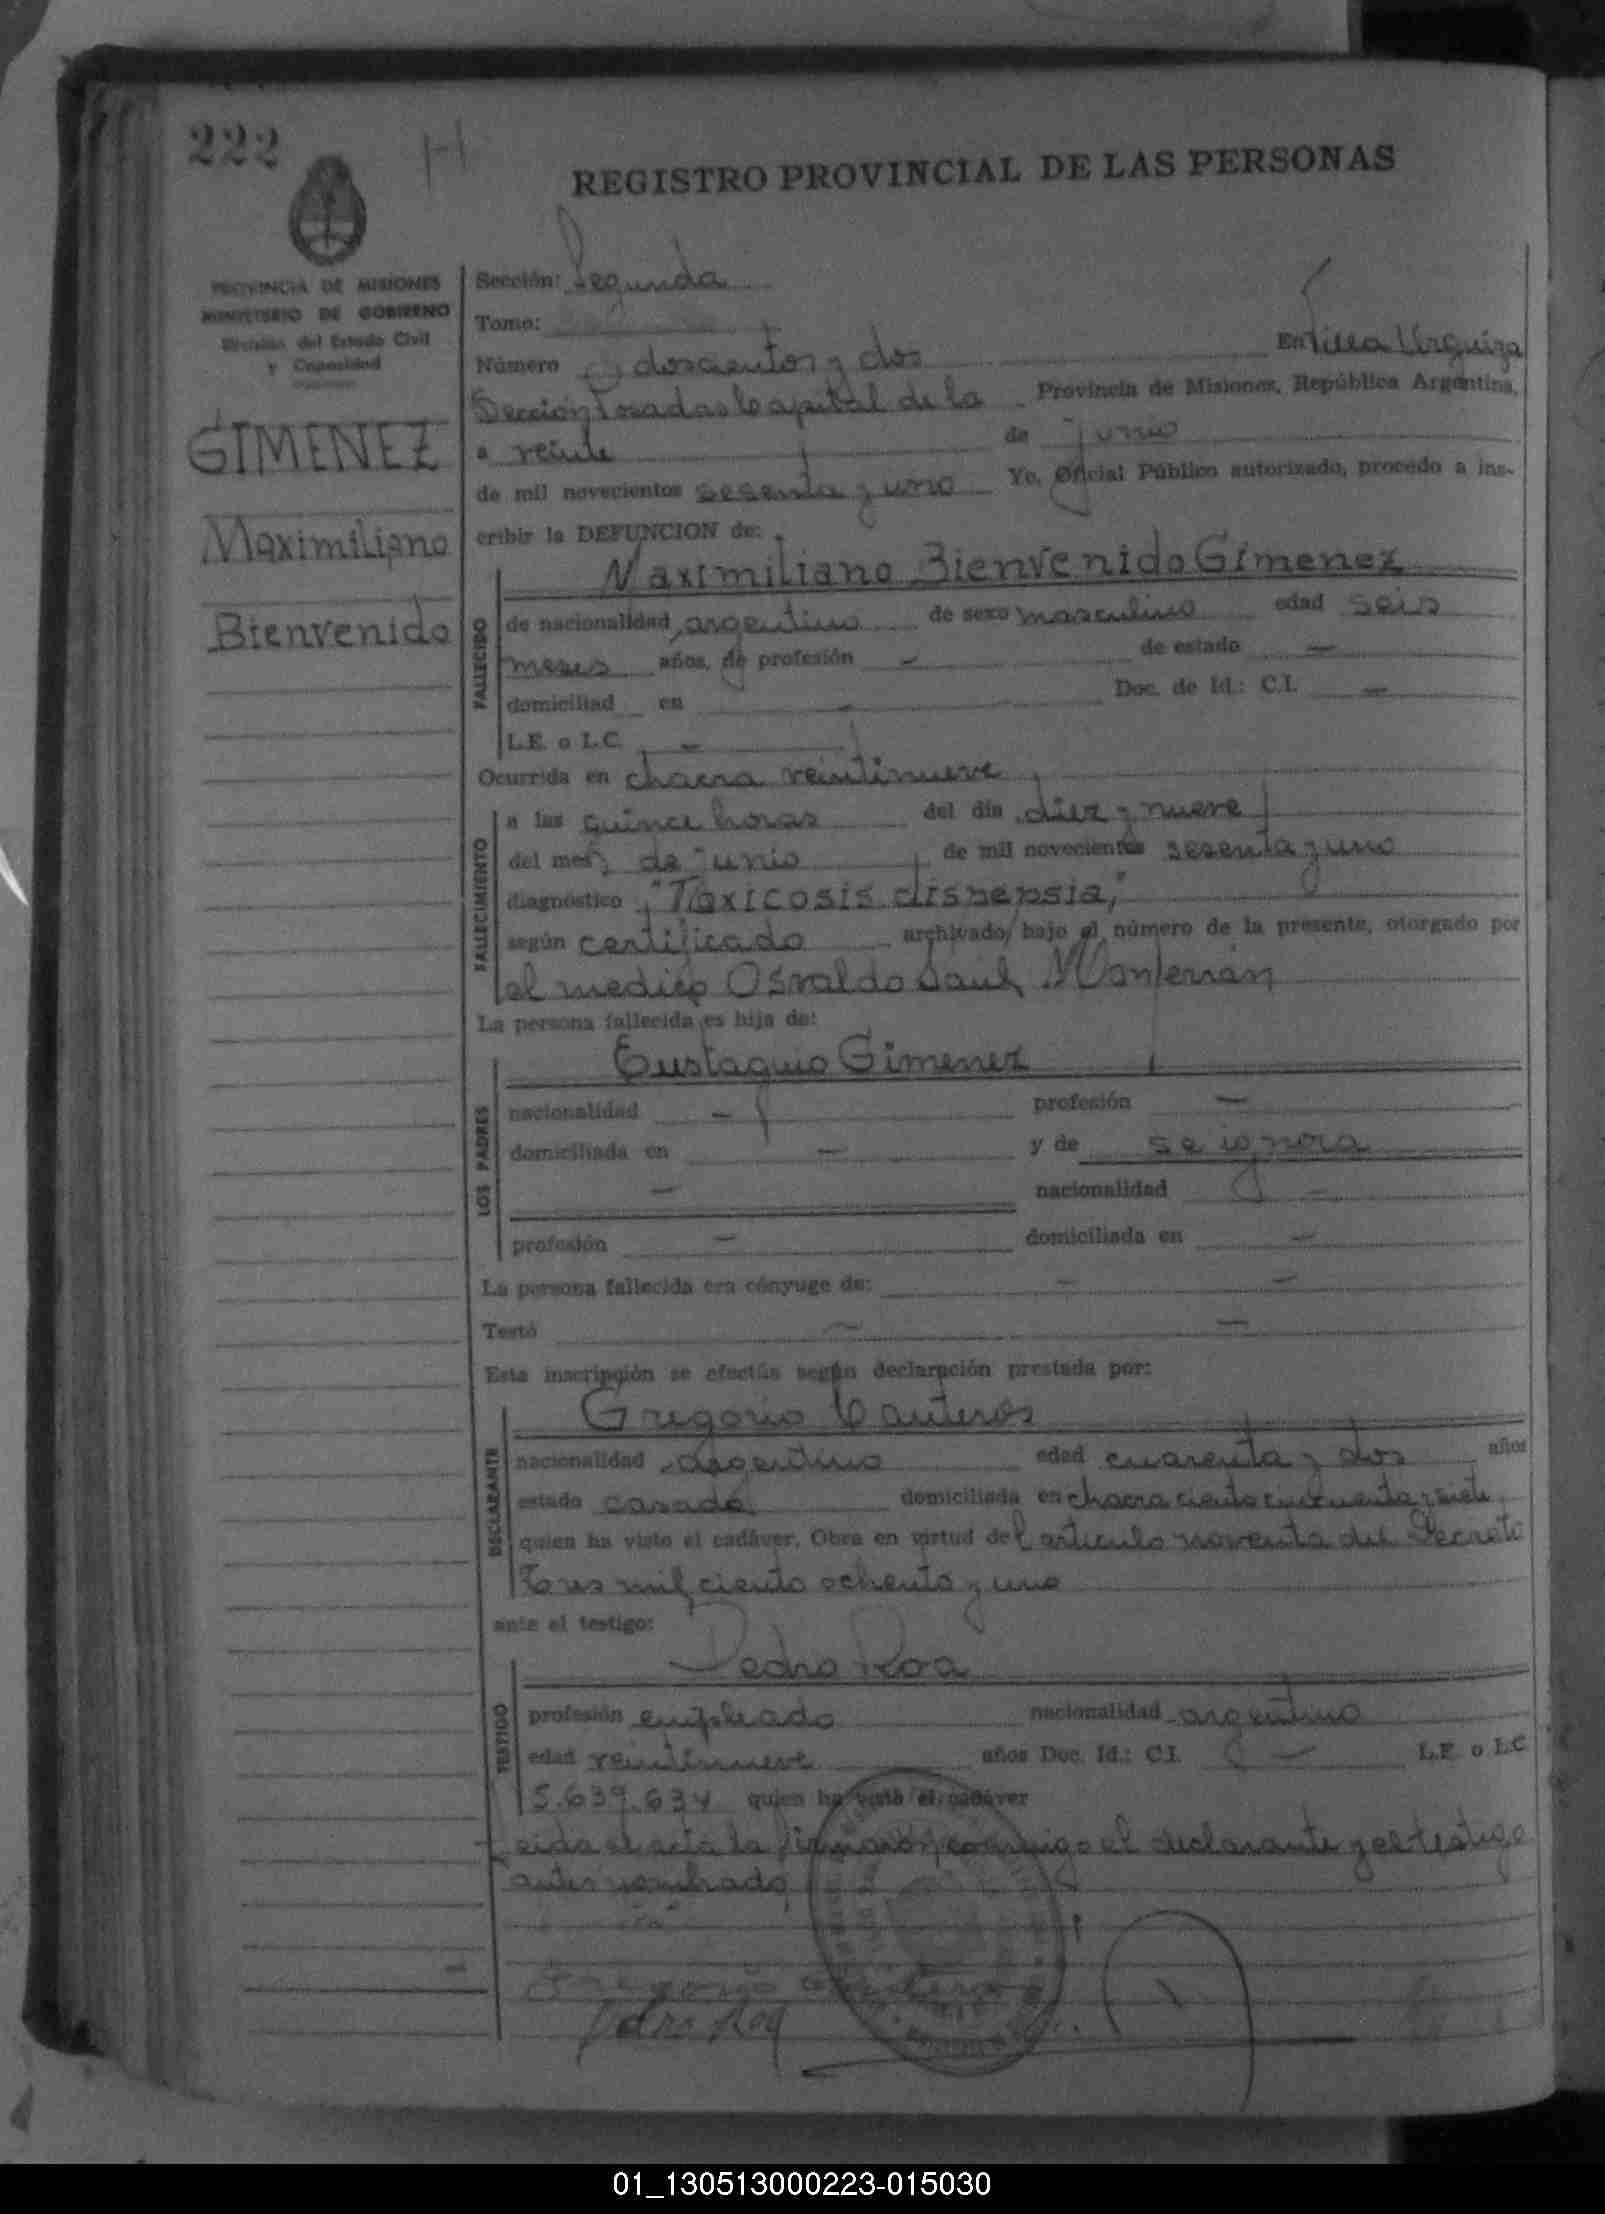 222
REGISTRO PROVINCIAL DE LAS PERSONAS
PROVINCIA DE MISIONES
MINISTERIO DE GOBIERNO
División del Estado Civil
y Capacidad
GIMENEZ
Maximiliano
Bienvenido
Sección: Segunda
Tomo:
Número doscientos y dos En Villa Urquiza
Sección Posadas Capital de la Provincia de Misiones, República Argentina,
a veinte de junio
de mil novecientos sesenta y uno Yo, Oficial Público autorizado, procedo a ins-
cribir la DEFUNCION de:
Maximiliano Bienvenido Gimenez
FALLECIDO
de nacionalidad argentino de sexo masculino edad seis
meses años, de profesión — de estado —
domiciliad en — Doc. de Id.: C.I. —
L.E. o L.C. —
Ocurrida en chacra veintinueve
FALLECIMIENTO
a las quince horas del día diez y nueve
del mes de junio de mil novecientos sesenta y uno
diagnóstico "Toxicosis dispepsia,"
según certificado archivado bajo el número de la presente, otorgado por
el medico Osvaldo Saul Monferrán
La persona fallecida es hija de:
Eustaquio Gimenez
LOS PADRES
nacionalidad — profesión —
domiciliada en — y de se ignora
— nacionalidad —
profesión — domiciliada en —
La persona fallecida era cónyuge de: — —
Testó — —
Esta inscripción se efectúa según declaración prestada por:
Gregorio Canteros
DECLARANTE
nacionalidad argentino edad cuarenta y dos años
estado casado domiciliada en chacra ciento cincuenta y siete
quien ha visto el cadáver. Obra en virtud del artículo noventa del Decreto
Tres mil ciento ochenta y uno
ante el testigo:
Pedro Roa
TESTIGO
profesión empleado nacionalidad argentino
edad veintinueve años Doc. Id.: C.I. — L.E. o L.C
5.639.634 quien ha visto el cadáver
Leida el acta la firmaron conmigo el declarante y el testigo
antes nombrado
Gregorio Canteros
Pedro Roa
01_130513000223-015030